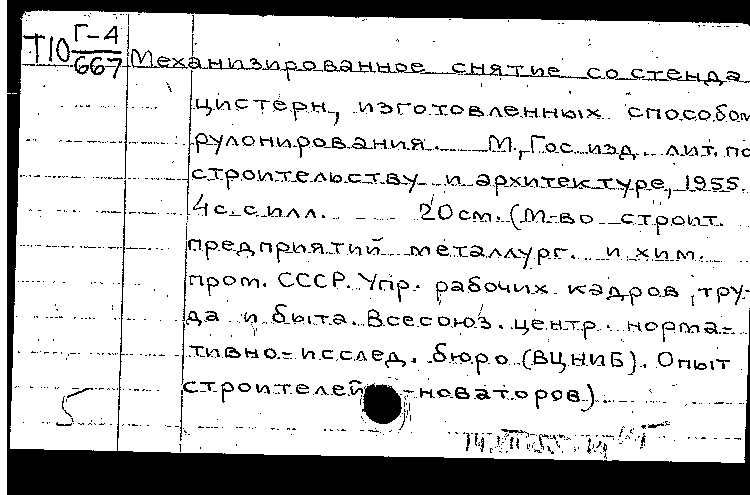 Т10 Г-4/667
Механизированное снятие со стенда
цистерн, изготовленных способом
рулонирования. М., Гос. изд. лит. по
строительству и архитектуре, 1955.
4 с. с илл. 20 см. (М-во строит.
предприятий металлург. и хим.
пром. СССР. Упр. рабочих кадров, тру-
да и быта. Всесоюз. центр. норма-
тивно-исслед. бюро (ВЦНИБ). Опыт
строителей-новаторов).